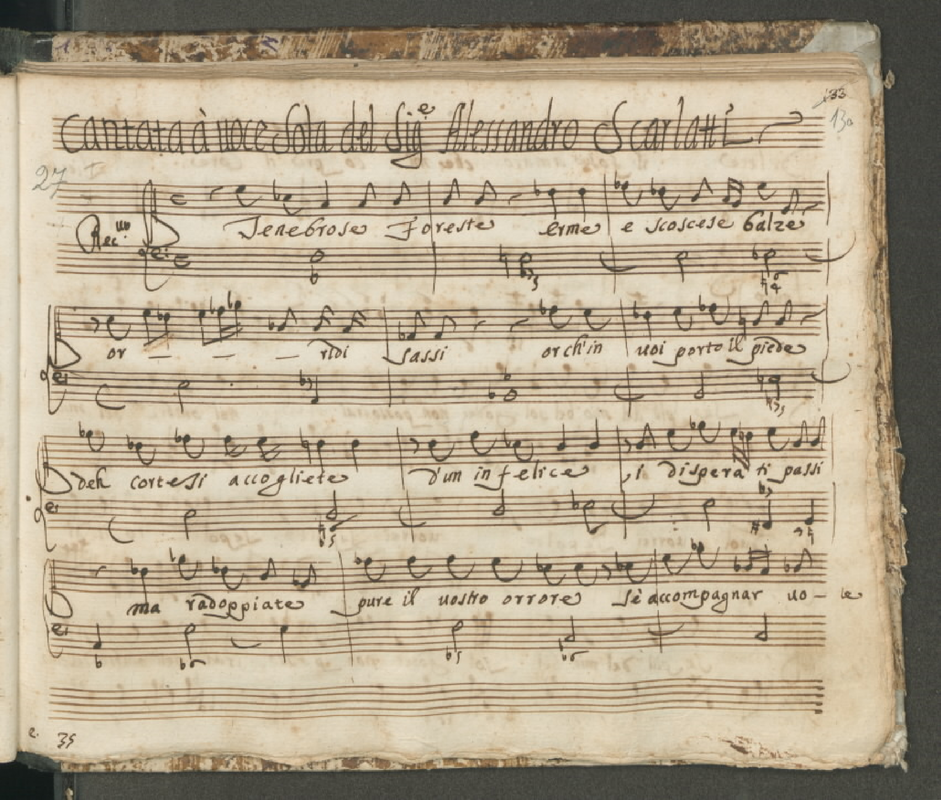 133
130
Cantata à uoce Sola del Sig.e Alessandro Scarlatti
27
Rec.uo Tenebrose Foreste erme e scoscese balze
or — — — ridi sassi or ch'in uoi porto il piede
deh cortesi accogliete d'un infelice i disperati passi
ma radoppiate pure il uostro orrore se accompagnar uo - le
2. 35